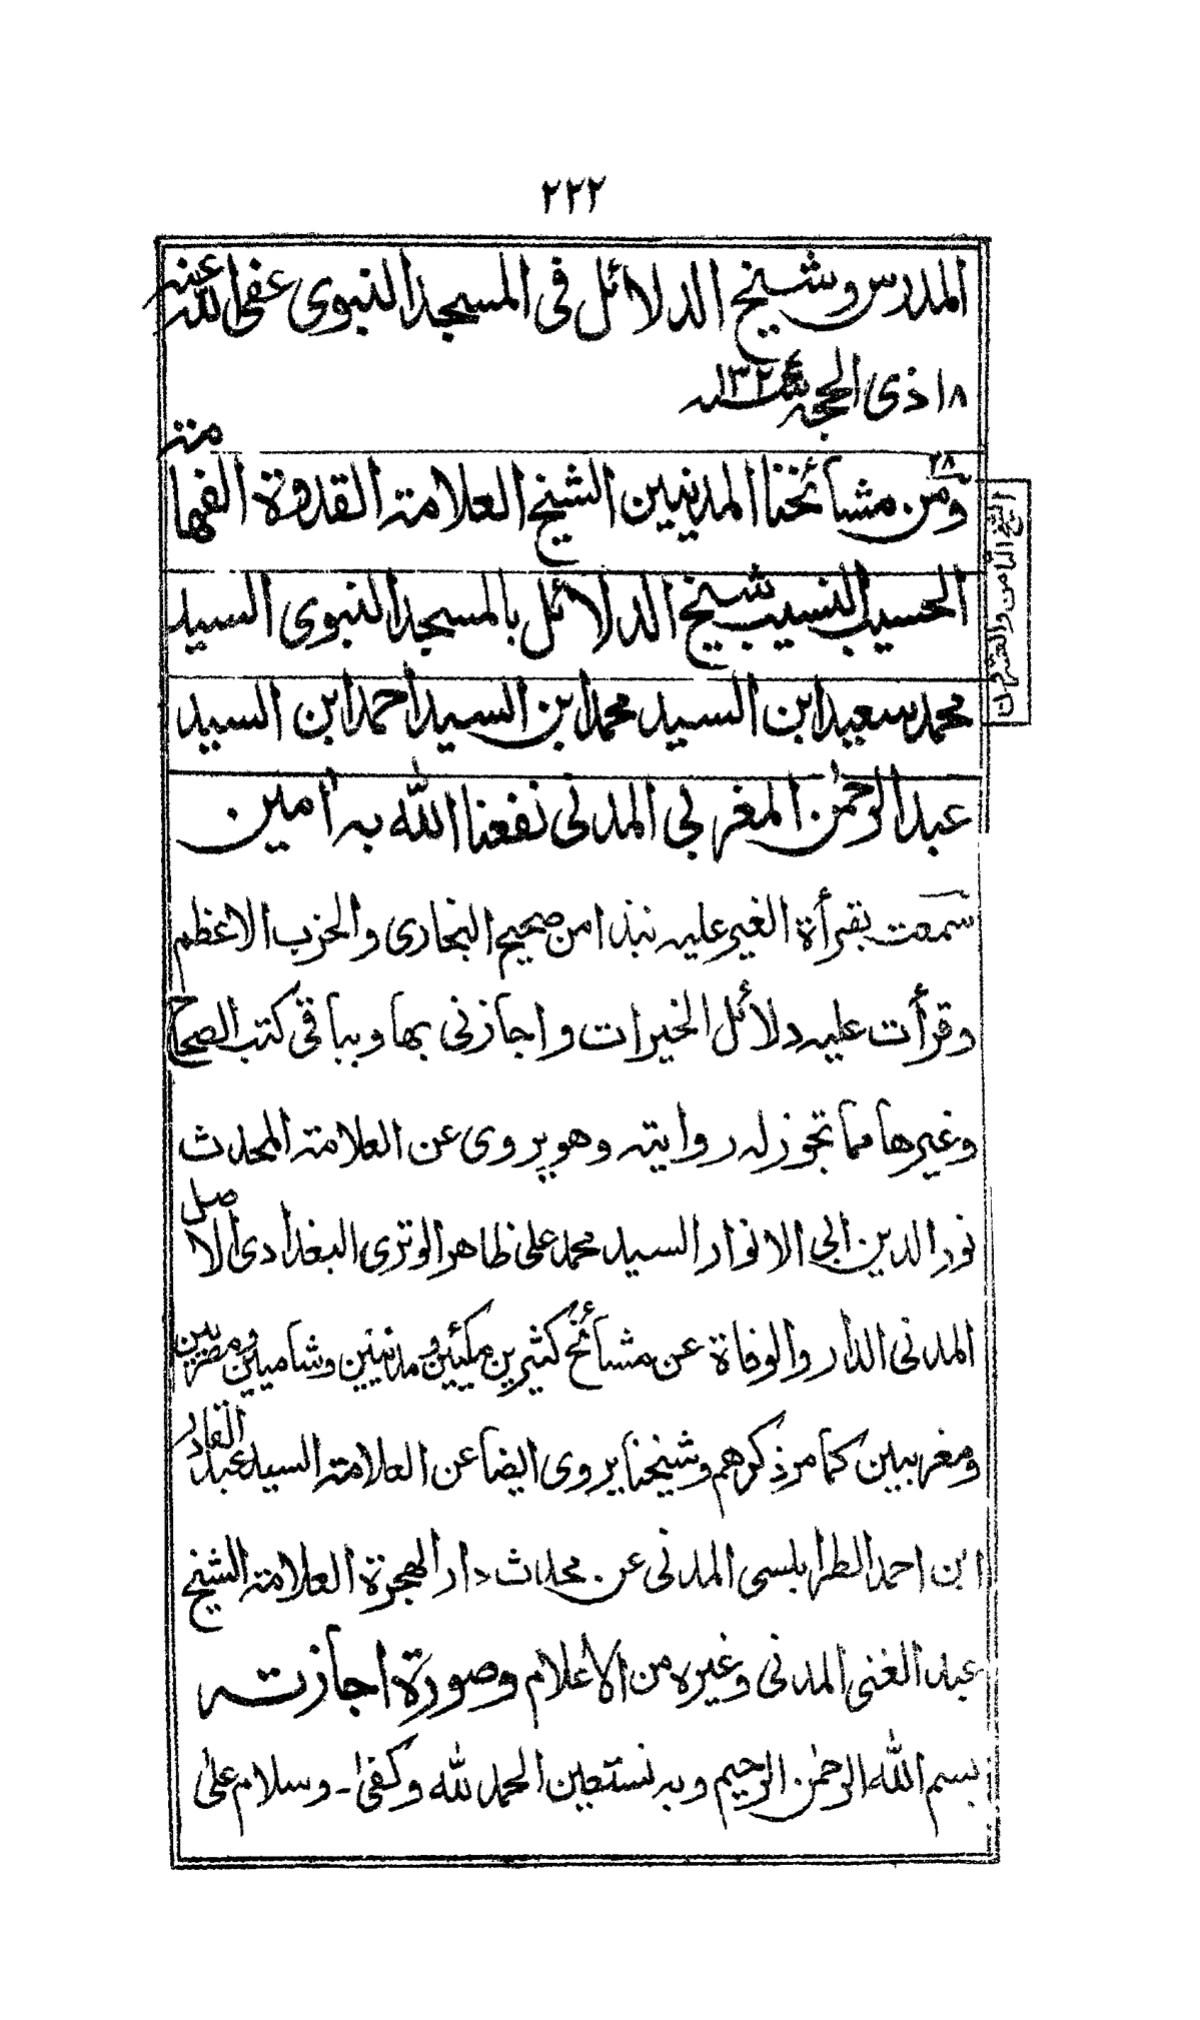 ٢٢٢
المدرس وشيخ الدلائل فى المسجد النبوى عفى الله عنه
١٨ ذى الحجه
ومن مشائخنا المدنيين الشيخ العلامة القدوة الفهامة
٢٨
الحسيب النسيب شيخ الدلائل بالمسجد النبوى السيد
محمد سعيد ابن السيد محمد ابن السيد احمد ابن السيد
عبد الرحمٰن المغربى المدنى نفعنا الله به اٰمين
الشيخ الثامن والعشرون
سمعت بقرأة الغير عليه نبذا من صحيح البخارى والحزب الاعظم
وقرأت عليه دلائل الخيرات واجازنى بها وبباقى كتب الصحاح
وغيرها مما تجوز له روايته وهو يروى عن العلامة المحدث
نور الدين ابى الانوار السيد محمد على ظاهر الوترى البغدادى الاصل
المدنى الدار والوفاة عن مشائخ كثيرين مكيين ومدنيين وشاميين ومصريين
ومغربيين كما مر ذكرهم وشيخنا يروى ايضا عن العلامة السيد عبد القادر
ابن احمد الطرابلسى المدنى عن محدث دار الهجرة العلامة الشيخ
عبد الغنى المدنى وغيره من الاعلام وصورة اجازته
بسم الله الرحمٰن الرحيم وبه نستعين الحمد لله وكفىٰ - وسلام علىٰ